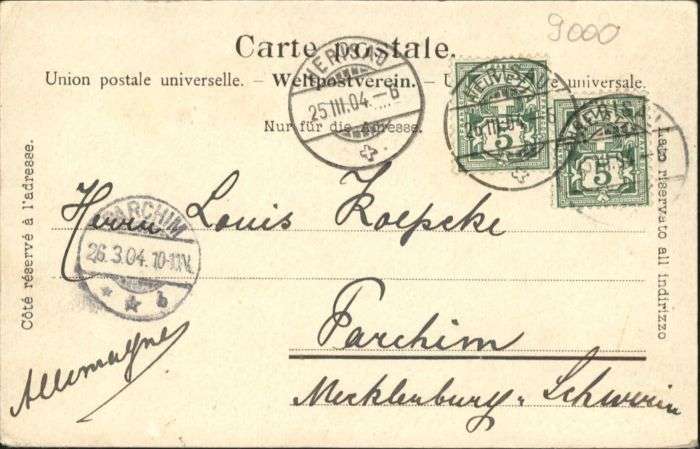 9000
Carte postale.
Union postale universelle. – Weltpostverein. – U e universale.
Nur für die Adresse.
HERISAU
25.III.04.–6
25.III.04.
5
5
Côté réservé à l'adresse.
Lato riservato all indirizzo
Herrn Louis Koepcke
PARCHIM
26.3.04.10-11V.
* * b
Parchim
Mecklenburg-Schwerin
Allemagne